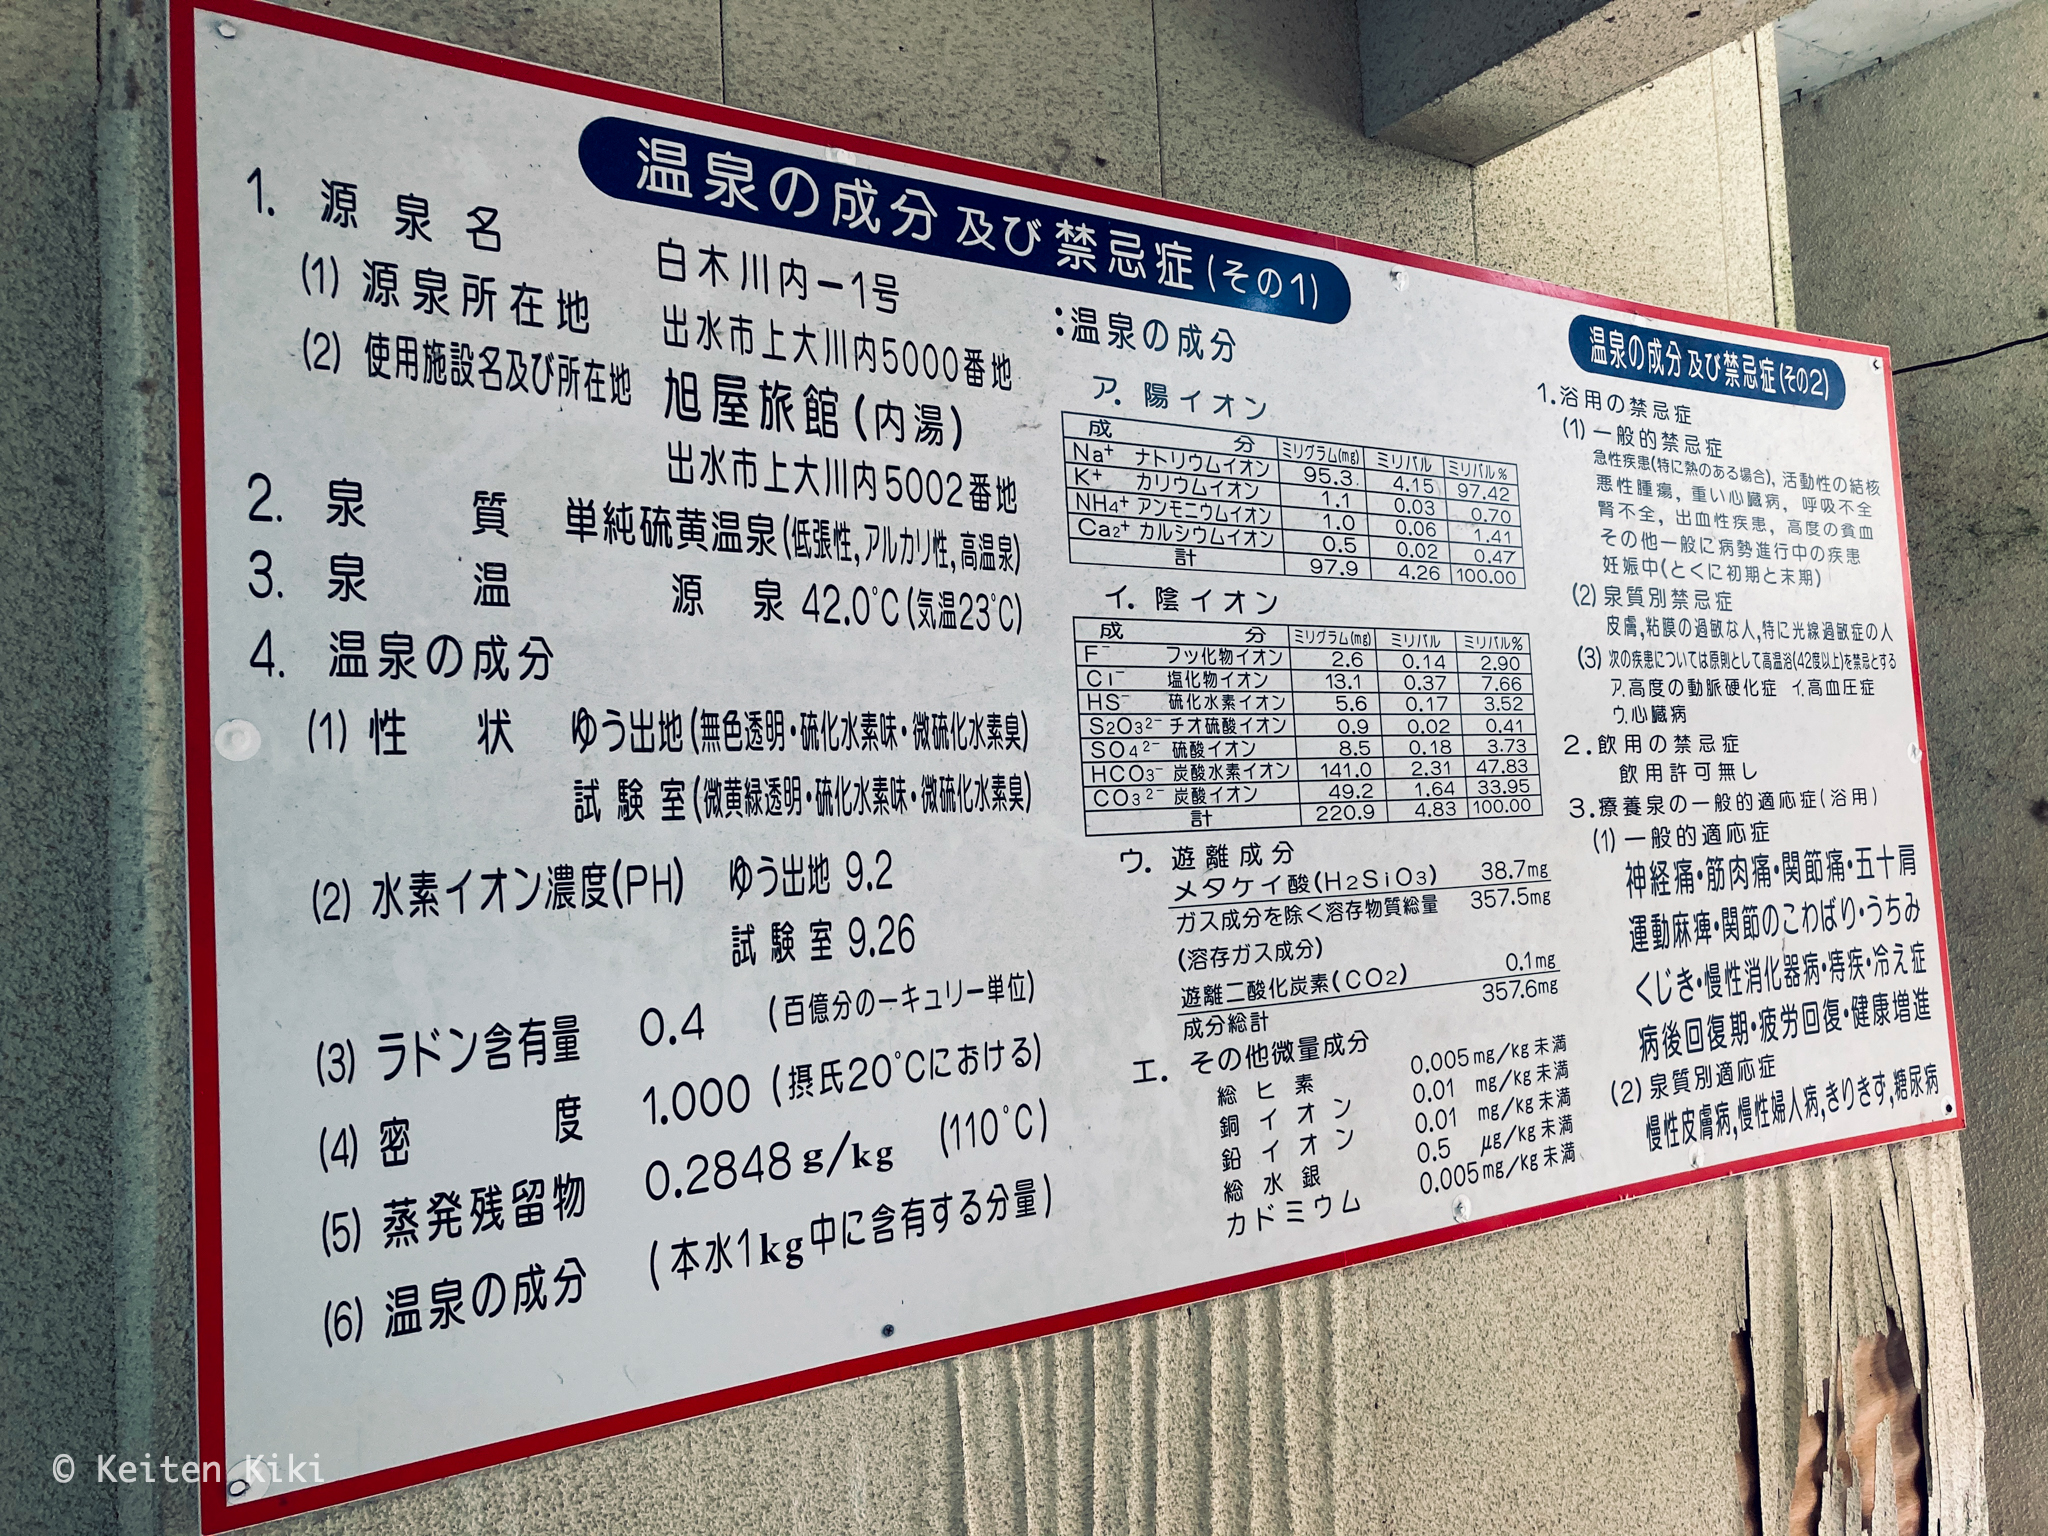 温泉の成分及び禁忌症(その1)
1. 源泉名 白木川内ー1号
(1) 源泉所在地 出水市上大川内5000番地
(2) 使用施設名及び所在地 旭屋旅館(内湯)
出水市上大川内5002番地
2. 泉質 単純硫黄温泉(低張性,アルカリ性,高温泉)
3. 泉温 源泉 42.0℃(気温23℃)
4. 温泉の成分
(1) 性状 ゆう出地(無色透明・硫化水素味・微硫化水素臭)
試験室(微黄緑透明・硫化水素味・微硫化水素臭)
(2) 水素イオン濃度(PH) ゆう出地 9.2
試験室 9.26
(3) ラドン含有量 0.4 (百億分の一キュリー単位)
(4) 密度 1.000 (摂氏20℃における)
(5) 蒸発残留物 0.2848g/kg (110℃)
(6) 温泉の成分 (本水1kg中に含有する分量)
:温泉の成分
ア. 陽イオン
成分 ミリグラム(mg) ミリバル ミリバル%
Na⁺ ナトリウムイオン 95.3 4.15 97.42
K⁺ カリウムイオン 1.1 0.03 0.70
NH₄⁺ アンモニウムイオン 1.0 0.06 1.41
Ca₂⁺ カルシウムイオン 0.5 0.02 0.47
計 97.9 4.26 100.00
イ. 陰イオン
成分 ミリグラム(mg) ミリバル ミリバル%
F⁻ フッ化物イオン 2.6 0.14 2.90
Cl⁻ 塩化物イオン 13.1 0.37 7.66
HS⁻ 硫化水素イオン 5.6 0.17 3.52
S₂O₃²⁻ チオ硫酸イオン 0.9 0.02 0.41
SO₄²⁻ 硫酸イオン 8.5 0.18 3.73
HCO₃⁻ 炭酸水素イオン 141.0 2.31 47.83
CO₃²⁻ 炭酸イオン 49.2 1.64 33.95
計 220.9 4.83 100.00
ウ. 遊離成分
メタケイ酸(H₂SiO₃) 38.7mg
ガス成分を除く溶存物質総量 357.5mg
(溶存ガス成分)
遊離二酸化炭素(CO₂) 0.1mg
成分総計 357.6mg
エ. その他微量成分
総ヒ素 0.005mg/kg未満
銅イオン 0.01 mg/kg未満
鉛イオン 0.01 mg/kg未満
総水銀 0.5 μg/kg未満
カドミウム 0.005mg/kg未満
温泉の成分及び禁忌症(その2)
1.浴用の禁忌症
(1)一般的禁忌症
急性疾患(特に熱のある場合),活動性の結核
悪性腫瘍,重い心臓病,呼吸不全
腎不全,出血性疾患,高度の貧血
その他一般に病勢進行中の疾患
妊娠中(とくに初期と末期)
(2)泉質別禁忌症
皮膚,粘膜の過敏な人,特に光線過敏症の人
(3)次の疾患については原則として高温浴(42度以上)を禁忌とする
ア.高度の動脈硬化症 イ.高血圧症
ウ.心臓病
2.飲用の禁忌症
飲用許可無し
3.療養泉の一般的適応症(浴用)
(1)一般的適応症
神経痛・筋肉痛・関節痛・五十肩
運動麻痺・関節のこわばり・うちみ
くじき・慢性消化器病・痔疾・冷え症
病後回復期・疲労回復・健康増進
(2)泉質別適応症
慢性皮膚病,慢性婦人病,きりきず,糖尿病
© Keiten Kiki